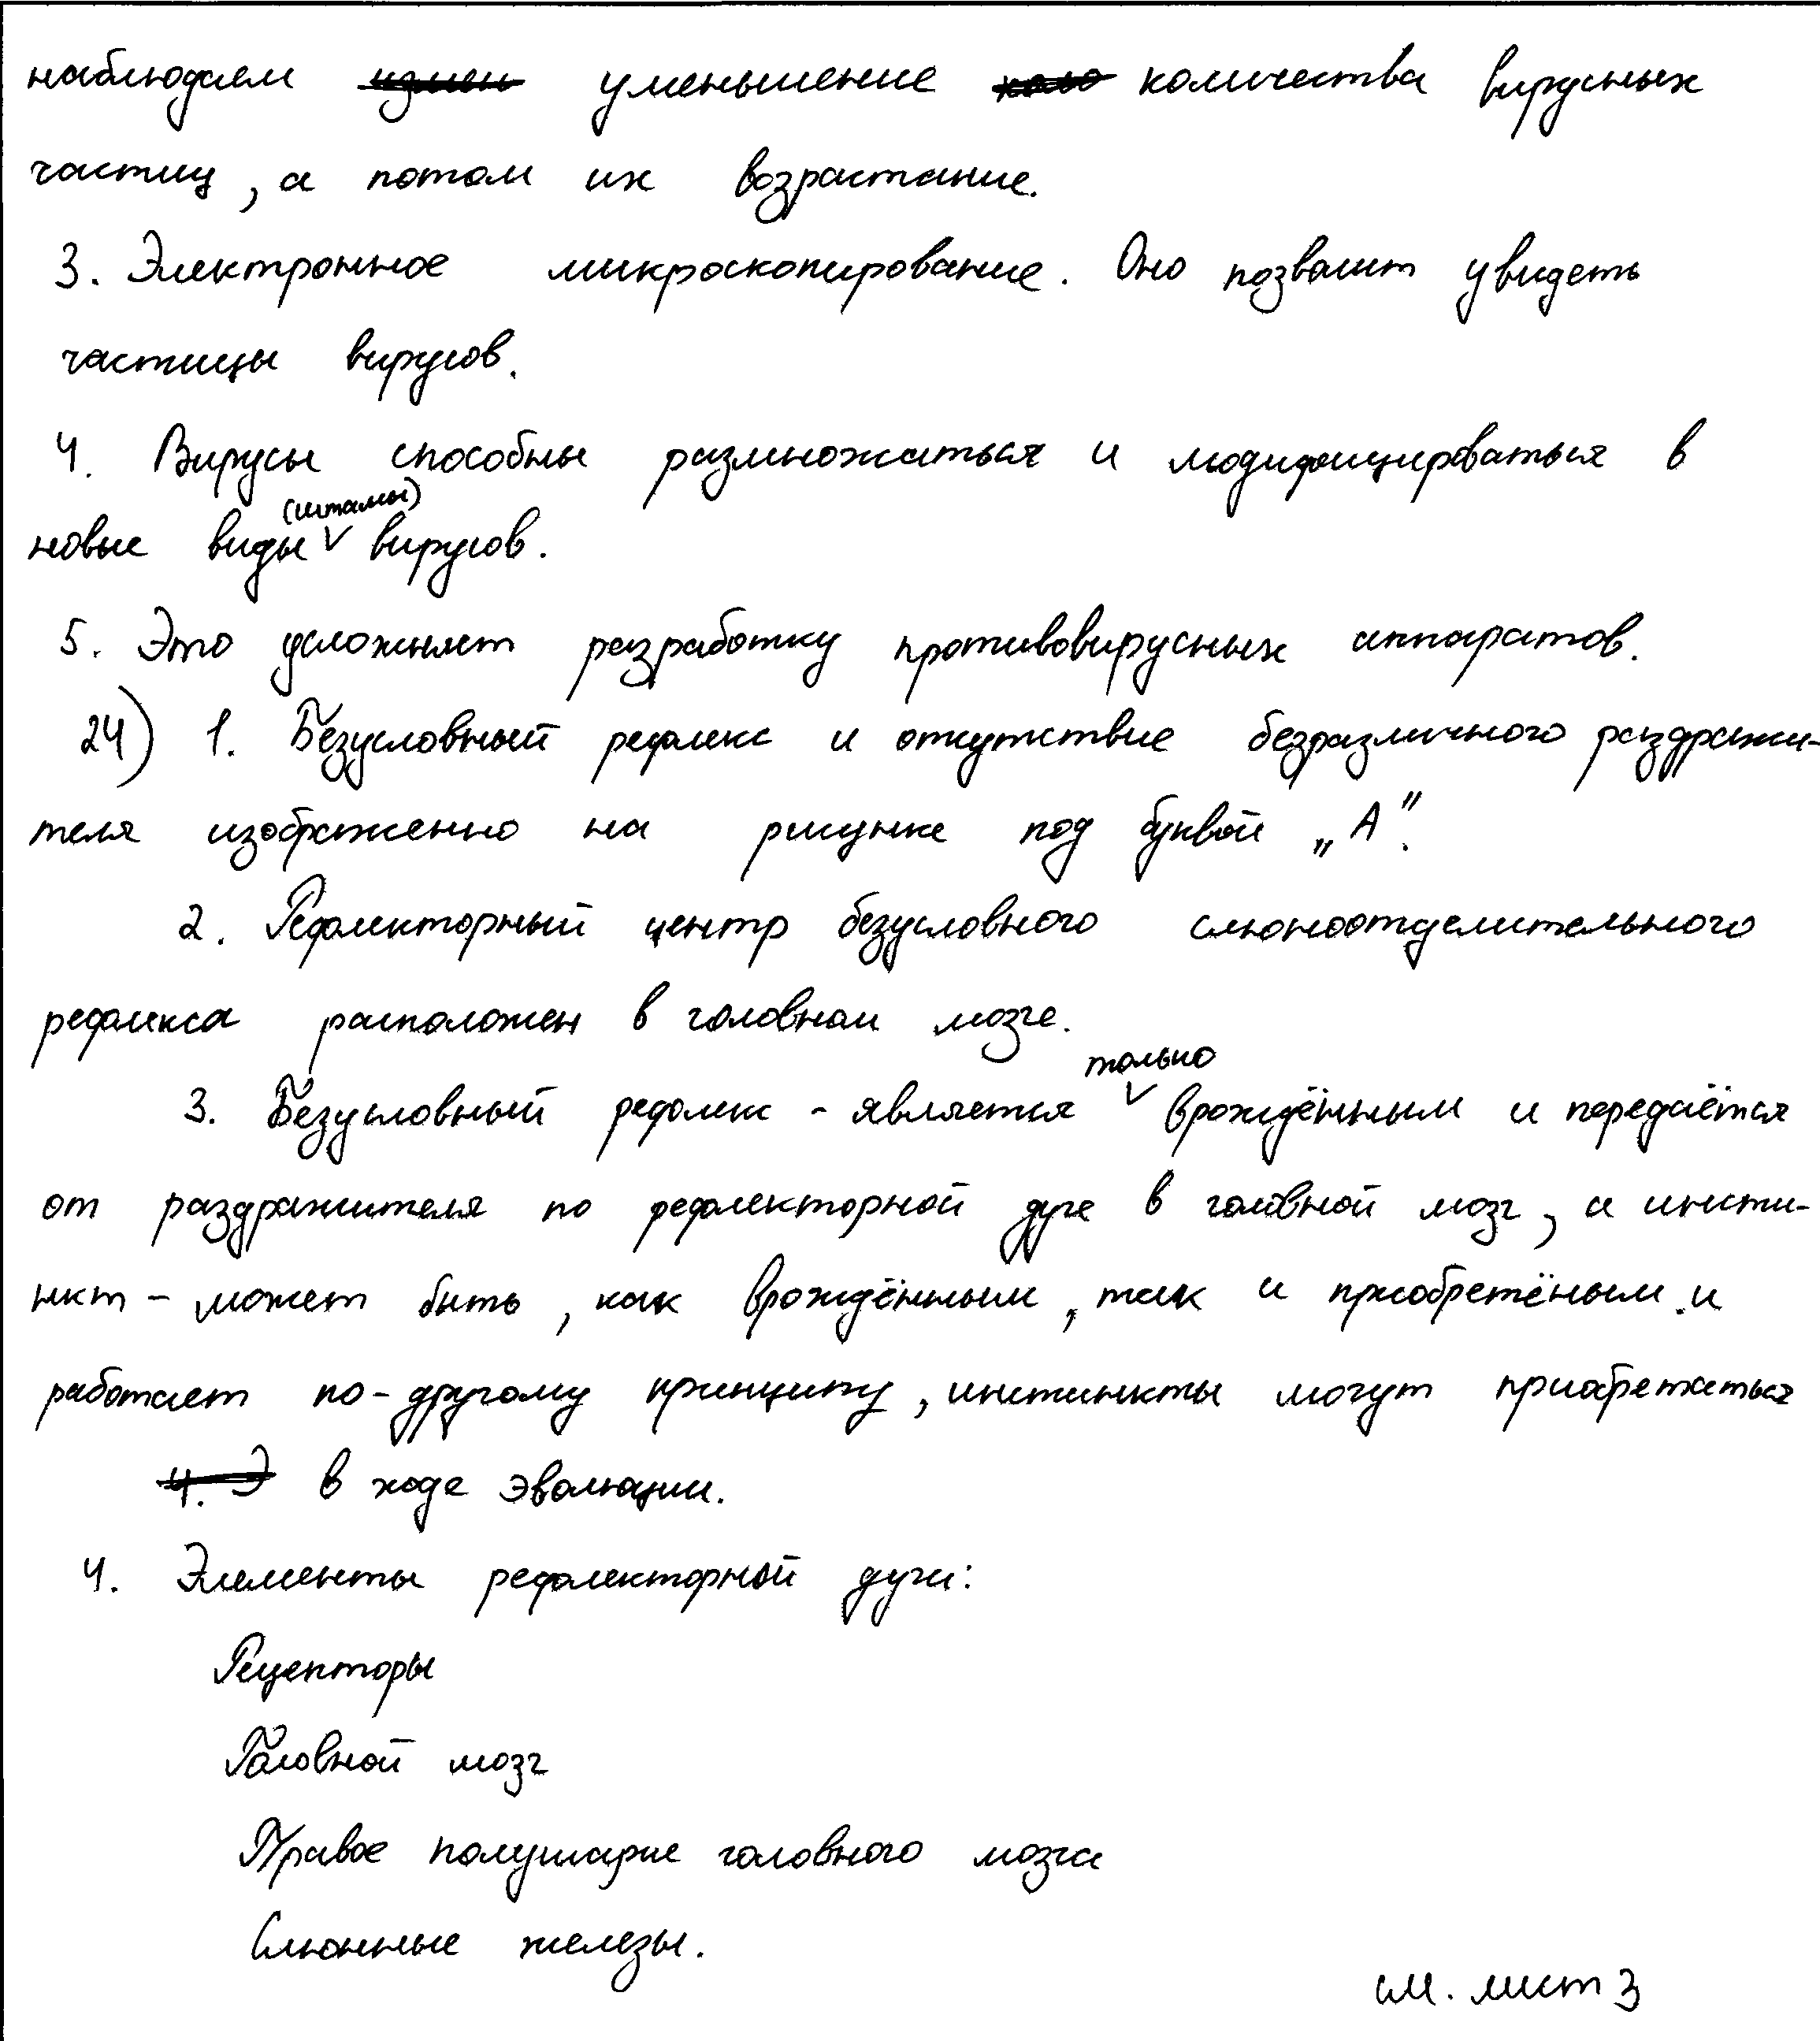 наблюдаем измен уменьшение коло количества вирусных
частиц, а потом их возрастание.
3. Электронное микроскопирование. Оно позволит увидеть
частицы вирусов.
4. Вирусы способны размножаться и модифицироваться в
новые виды (штамы) вирусов.
5. Это усложняет разработку противовирусных аппаратов.
24) 1. Безусловный рефлекс и отсутствие безразличного раздражи-
теля изображенно на рисунке под буквой „А".
2. Рефлекторный центр безусловного слюноотделительного
рефлекса расположен в головном мозге.
3. Безусловный рефлекс - является только врождённым и передаётся
от раздражителя по рефлекторной дуге в головной мозг, а инсти-
нкт - может быть, как врождённым, так и приобретёным и
работает по-другому принципу, инстинкты могут приобретаться
4. Э в ходе эволюции.
4. Элементы рефлекторной дуги:
Рецепторы
Головной мозг
Правое полушарие головного мозга
Слюнные железы.
см. лист 3